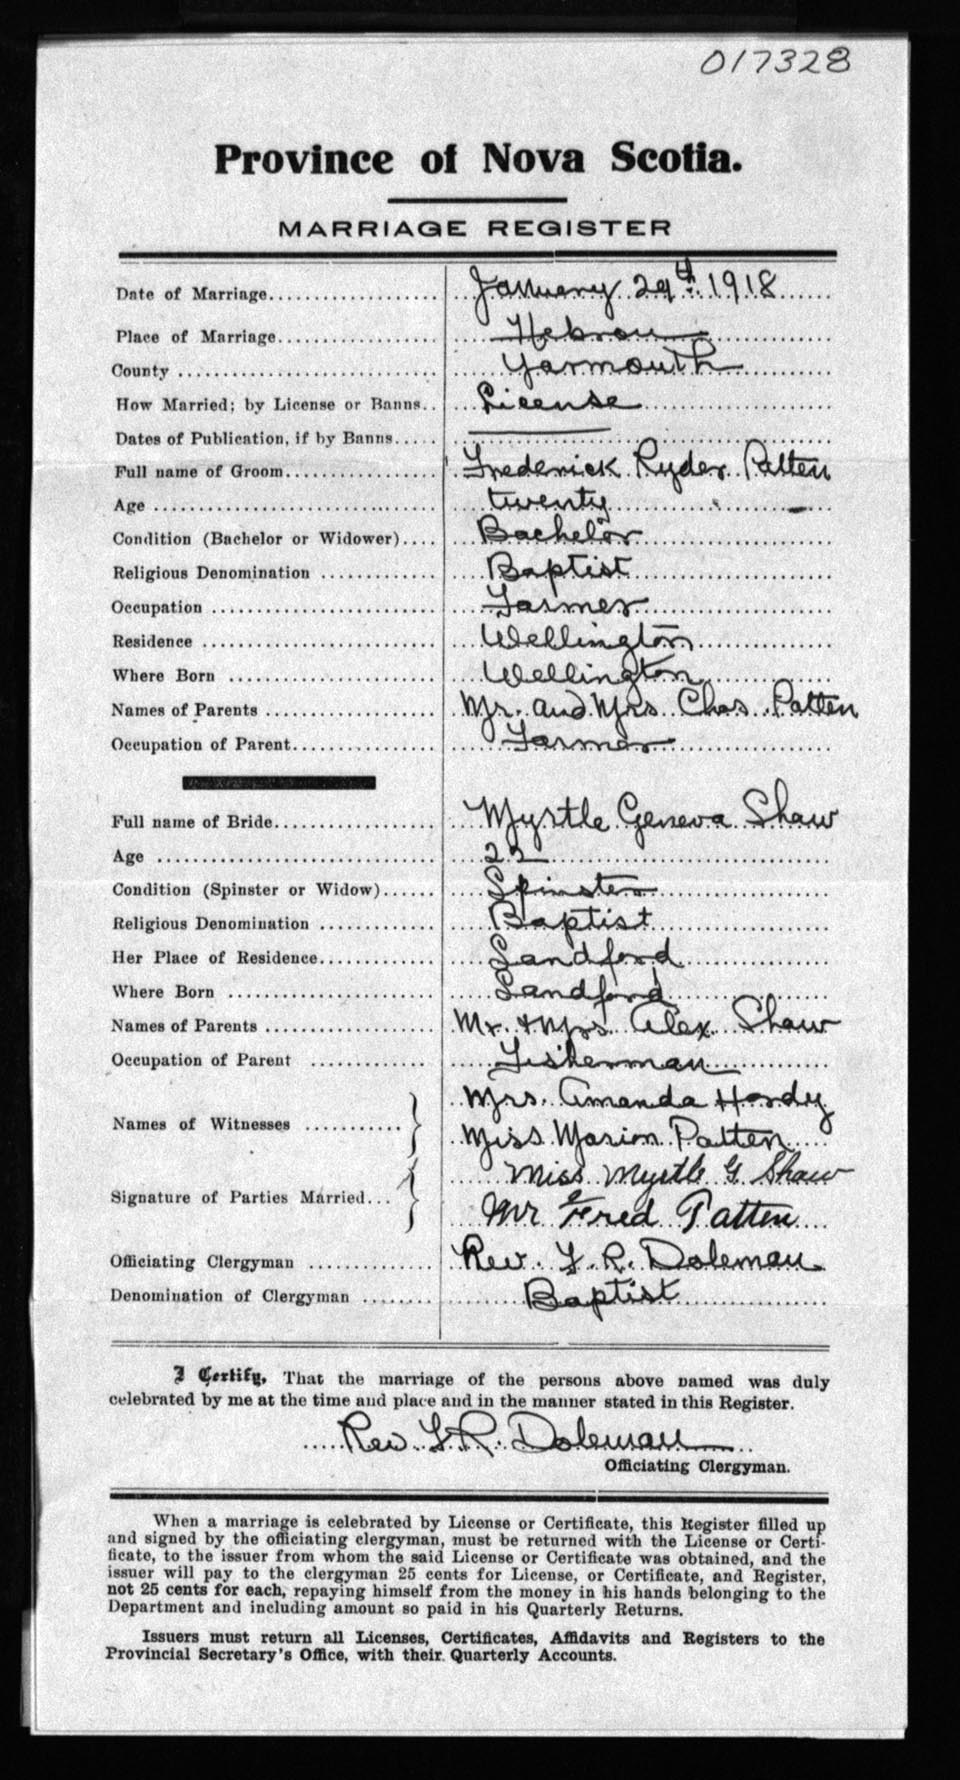 017328
Province of Nova Scotia.
MARRIAGE REGISTER
Date of Marriage................... January 29th 1918
Place of Marriage.................. Hebron
County ............................ Yarmouth
How Married; by License or Banns.. License
Dates of Publication, if by Banns.....
Full name of Groom................. Frederick Ryder Patten
Age ............................... twenty
Condition (Bachelor or Widower).... Bachelor
Religious Denomination ............ Baptist
Occupation ........................ Farmer
Residence ......................... Wellington
Where Born ........................ Wellington
Names of Parents .................. Mr. and Mrs Chas. Patten
Occupation of Parent............... Farmer
Full name of Bride................. Myrtle Geneva Shaw
Age ............................... 22
Condition (Spinster or Widow)...... Spinster
Religious Denomination ............ Baptist
Her Place of Residence............. Sandford
Where Born ........................ Sandford
Names of Parents .................. Mr. & Mrs. Alex Shaw
Occupation of Parent .............. Fisherman
Names of Witnesses ........... } Mrs. Amanda Hordy
Miss Marion Patten
Signature of Parties Married... } Miss Myrtle G. Shaw
Mr Fred Patten
Officiating Clergyman ............. Rev. F. R. Doleman
Denomination of Clergyman ........ Baptist
I Certify, That the marriage of the persons above named was duly
celebrated by me at the time and place and in the manner stated in this Register.
Rev F. R. Doleman
Officiating Clergyman.
When a marriage is celebrated by License or Certificate, this Register filled up
and signed by the officiating clergyman, must be returned with the License or Certi-
ficate, to the issuer from whom the said License or Certificate was obtained, and the
issuer will pay to the clergyman 25 cents for License, or Certificate, and Register,
not 25 cents for each, repaying himself from the money in his hands belonging to the
Department and including amount so paid in his Quarterly Returns.
Issuers must return all Licenses, Certificates, Affidavits and Registers to the
Provincial Secretary's Office, with their Quarterly Accounts.